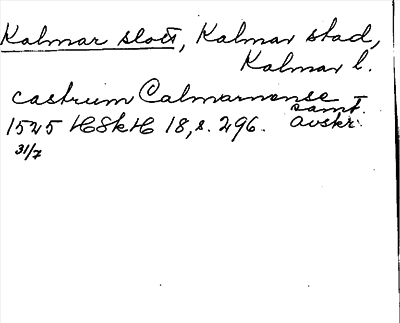 Kalmar slott, Kalmar stad,
Kalmar l.
castrum Calmarnense
1525 HSkH 18, s. 296. samt. avskr.
31/7